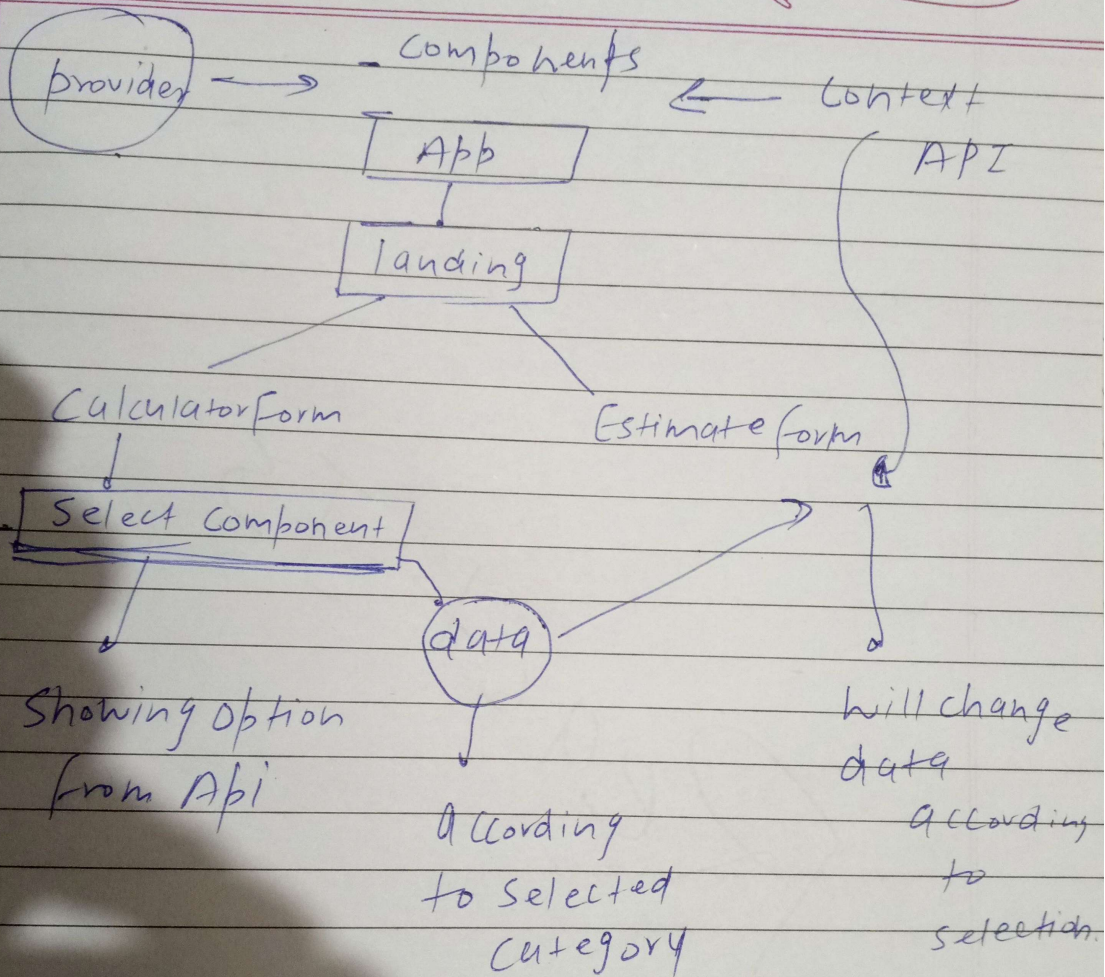 provider
Components
Context
API
App
landing
Calculator Form
Estimate form
Select Component
data
Showing option
from Api
According
to selected
category
Will change
data
according
to
selection.